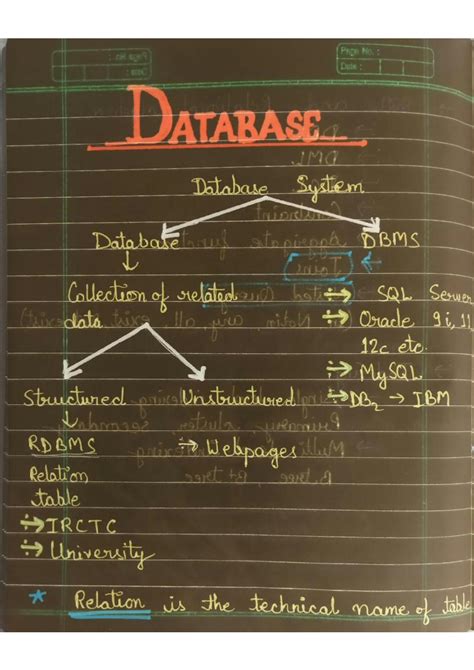 Page No. :
Date :
DATABASE
Database System
Database
DBMS
Collection of related
data
SQL Server
Oracle 9i, 11
12c etc.
MySQL
DB2 → IBM
Structured
Unstructured
RDBMS
Relation
table
IRCTC
University
Webpages
* Relation is the technical name of table